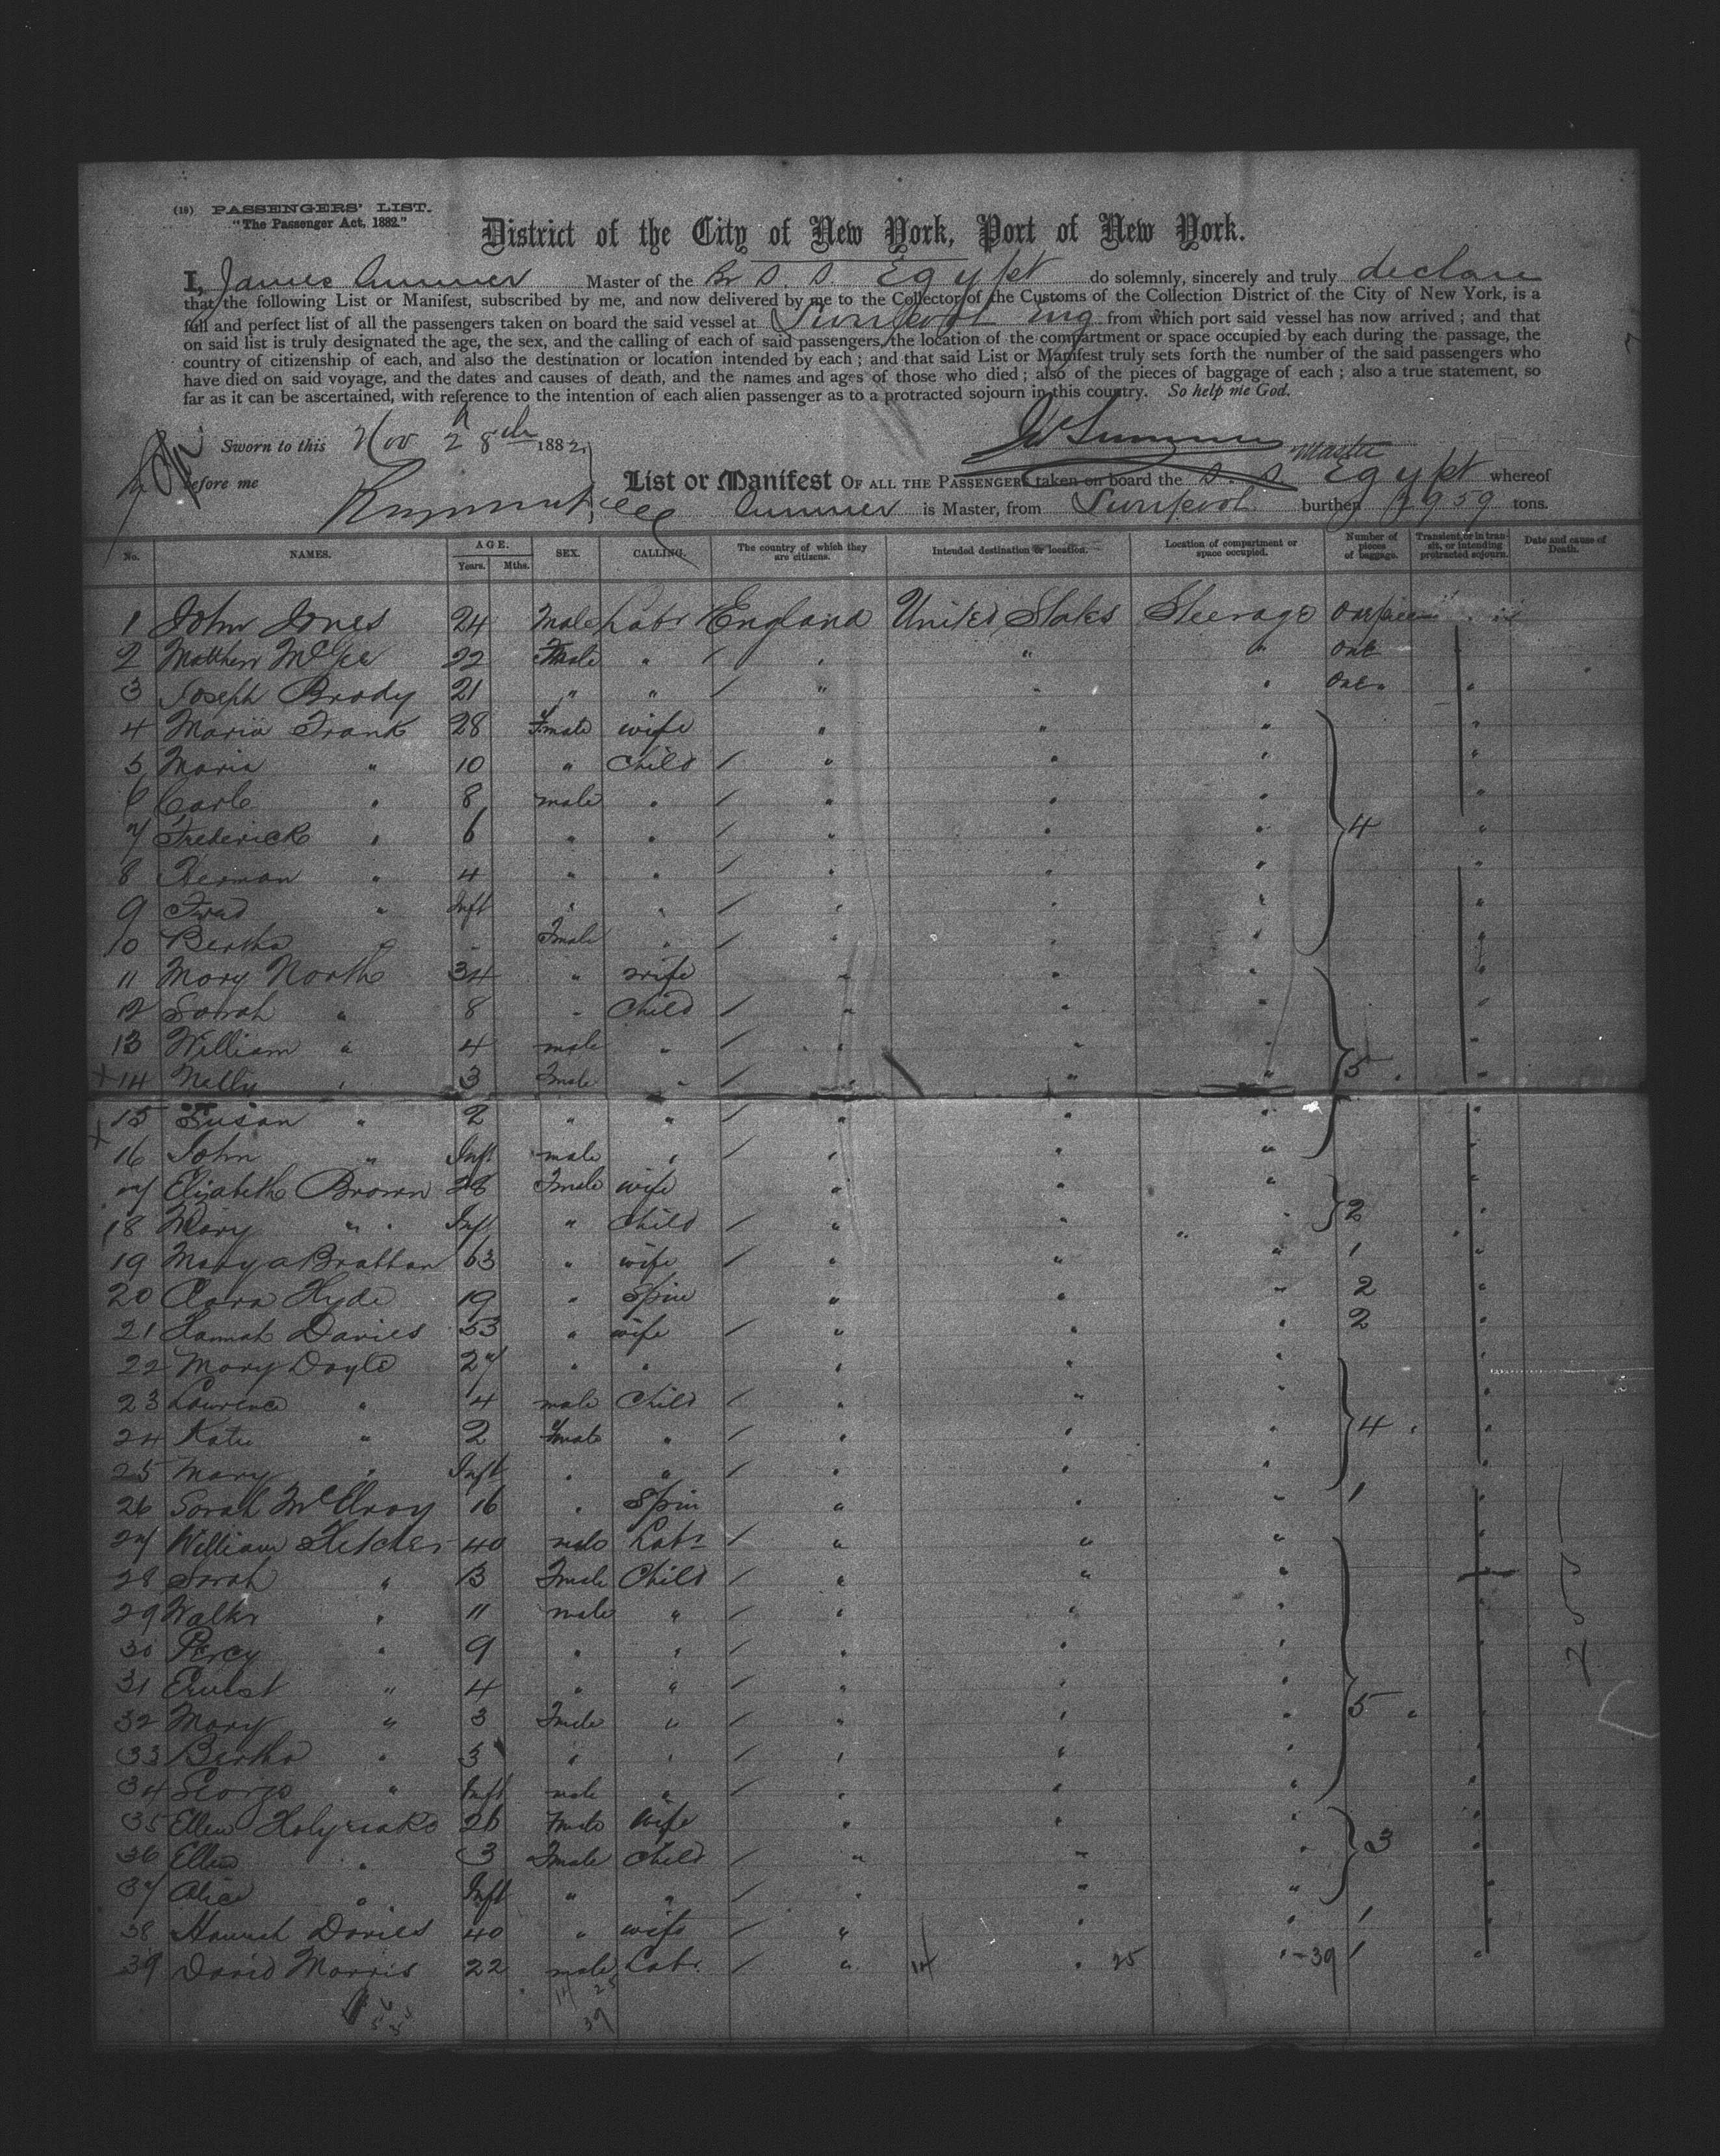 (10) PASSENGERS' LIST.
"The Passenger Act, 1882."
District of the City of New York, Port of New York.
I, James Sumner Master of the Br S. S. Egypt do solemnly, sincerely and truly declare
that the following List or Manifest, subscribed by me, and now delivered by me to the Collector of the Customs of the Collection District of the City of New York, is a
full and perfect list of all the passengers taken on board the said vessel at Liverpool Eng from which port said vessel has now arrived; and that
on said list is truly designated the age, the sex, and the calling of each of said passengers, the location of the compartment or space occupied by each during the passage, the
country of citizenship of each, and also the destination or location intended by each; and that said List or Manifest truly sets forth the number of the said passengers who
have died on said voyage, and the dates and causes of death, and the names and ages of those who died; also of the pieces of baggage of each; also a true statement, so
far as it can be ascertained, with reference to the intention of each alien passenger as to a protracted sojourn in this country. So help me God.
Sworn to this Nov 28th 1882, Sumner Master
before me
List or Manifest OF ALL THE PASSENGERS taken on board the S. S. Egypt whereof
Sumner is Master, from Liverpool burthen 2959 tons.
No. NAMES. AGE. Years. Mths. SEX. CALLING. The country of which they are citizens. Intended destination or location. Location of compartment or space occupied. Number of pieces of baggage. Transient, or in transit, or intending protracted sojourn. Date and cause of Death.
1 John Jones 24 Male Labr England United States Steerage One piece
2 Matthew McGee 22 Male " " " " One
3 Joseph Brody 21 " " " " " One "
4 Maria Frank 28 Fmale wife " " " "
5 Maria " 10 " Child " " " "
6 Carl " 8 male " " " " "
7 Frederick " 6 " " " " " 4 "
8 Herman " 4 " " " " " "
9 Fred " Inft " " " " " "
10 Bertha " " Fmale " " " " "
11 Mary North 34 " wife " " " "
12 Sarah " 8 " Child " " " "
13 William " 4 male " " " " "
14 Nelly " 3 Fmale " " " " 5 "
15 Susan " 2 " " " " " "
16 John " Inft male " " " " "
17 Elizabeth Brown 28 Fmale wife " " " "
18 Mary " Inft " Child " " " 2 "
19 Mary a Brattan 63 " wife " " " 1 "
20 Clara Hyde 19 " Spin " " " 2 "
21 Hannah Davies 53 " wife " " " 2 "
22 Mary Doyle 27 " " " " " "
23 Lawrence " 4 male Child " " " "
24 Katie " 2 Fmale " " " " 4 "
25 Mary " Inft " " " " " "
26 Sarah McElroy 16 " Spin " " " 1 "
27 William Fletcher 40 male Labr " " " "
28 Sarah " 13 Fmale Child " " " "
29 Walter " 11 male " " " " "
30 Percy " 9 " " " " " "
31 Ernest " 4 " " " " " "
32 Mary " 3 Fmale " " " " 5 "
33 Bertha " 3 " " " " " "
34 George " Inft male " " " " "
35 Ellen Holyoake 26 Fmale Wife " " " "
36 Ellen " 3 Fmale Child " " " 3 "
37 Alice " Inft " " " " " "
38 Hannah Davies 40 " wife " " " 1 "
39 David Morris 22 male Labr " 14 " 25 " 39 1 "
14 25
39